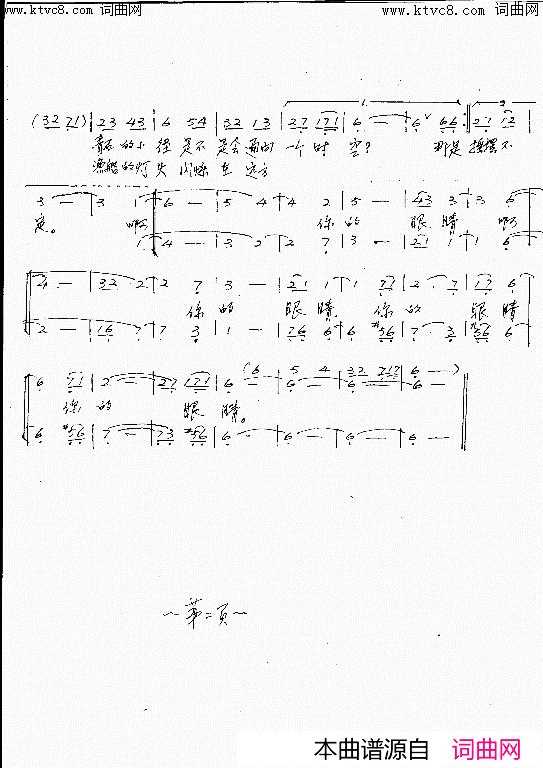 www.ktvc8.com 词曲网 www.ktvc8.com 词曲网
(3 2 7 1) | 2 3 4 3 | 6 5 4 | 3 2 1 3 | 2 7 1 7 1 | 6 — | 6 6 6 :| 2 7 1 2 |
青石的小径是不是会通向一个时空? 那是摇摆不
渔船的灯火闪烁在远方
3 — | 3 1 | 6 — | 5 4 | 4 2 | 5 — | 4 3 3 | 3 6
定。 啊 你的 眼睛 啊
1 | 4 — | 3 2 | 2 7 | 3 — | 2 1 1 | 1 6
4 — | 3 2 2 | 2 7 | 3 — | 2 1 1 | 1 7 1 | 2 · 7 | 1 7 6
你的 眼睛 你的 眼睛
2 — | 1 6 7 | 7 3 | 1 — | 7 6 6 | 6 #5 6 | 7 · 3 | #5 6 6
6 7 1 | 2 — | 2 7 1 7 1 | 6 — (6 | 5 4 | 3 2 7 1 7 | 6 — )
你的 眼睛。
6 #5 6 | 7 — | 7 3 #5 6 | 6 — | 6 — | 6 — | 6 —
~第二页~
本曲谱源自 词曲网